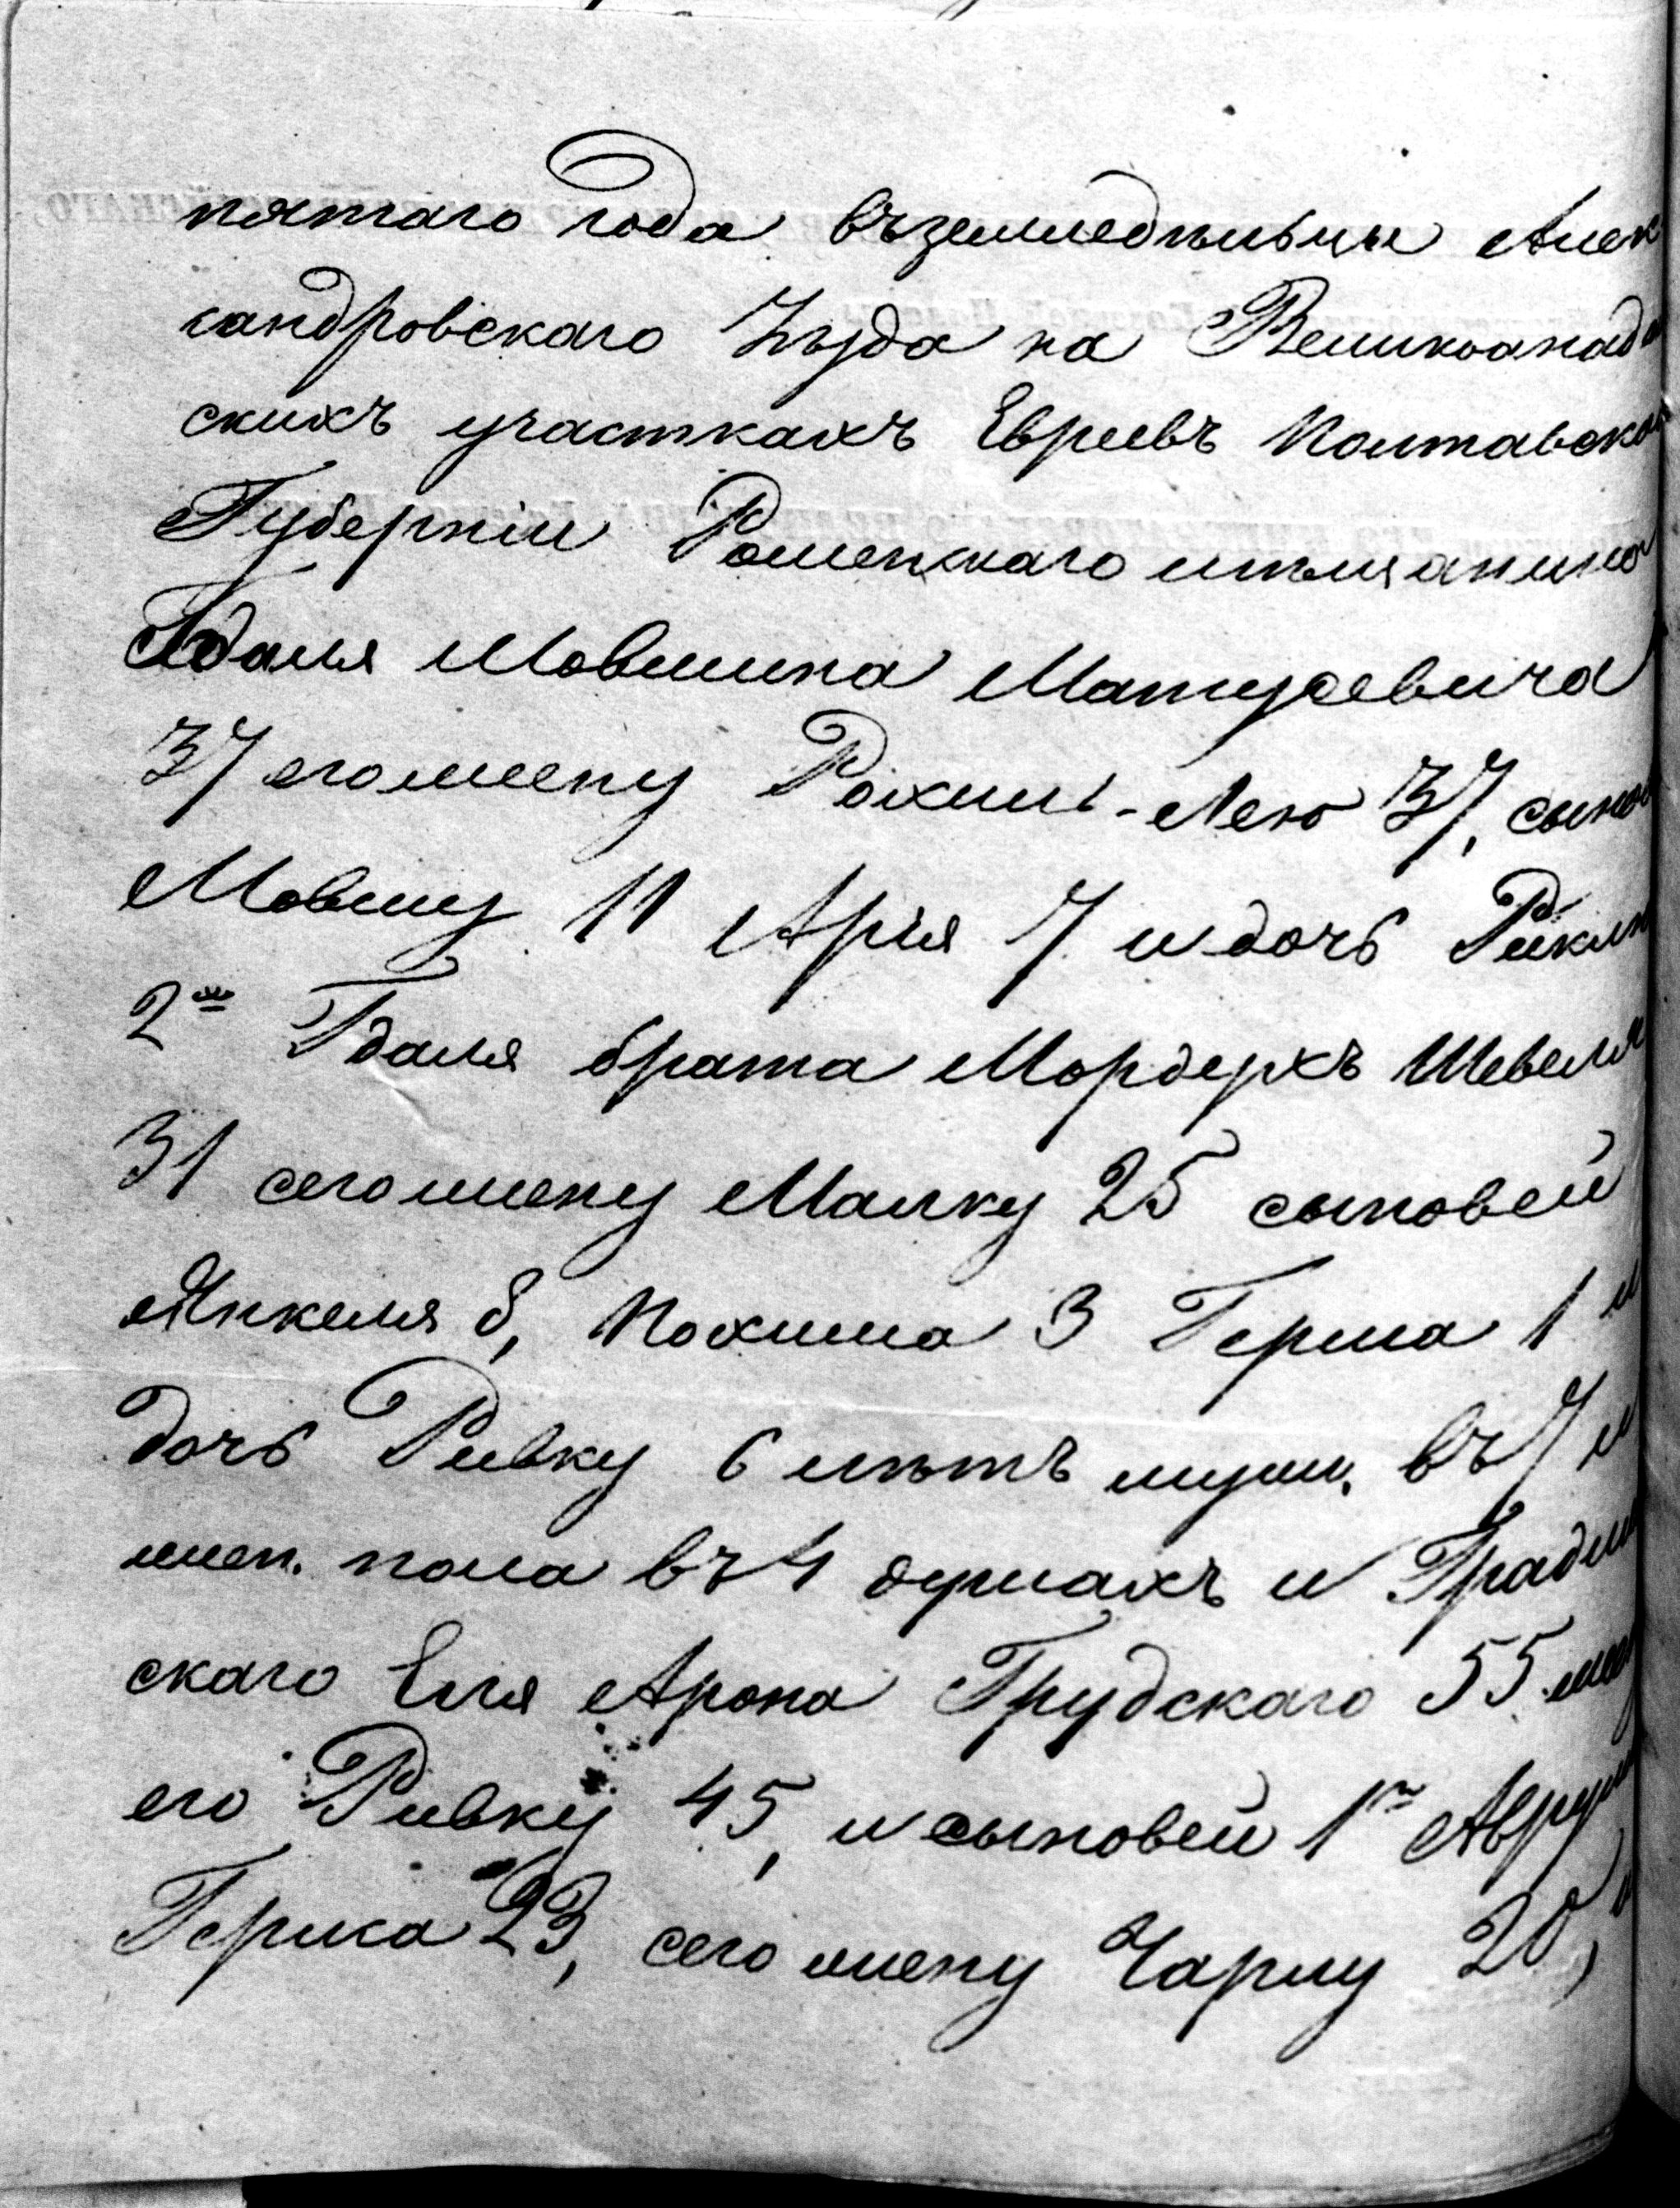 пятаго года въземледѣльцы Алек
сандровскаго Уѣзда на Великоанадо
скихъ участкахъ Евреевъ Полтавско
Губерніи Роменскаго мѣщанина
Гдаля Мовшина Матусевича
37 егожену Рохиль-Лею 37, сыно
Мовшу 11 Арія 7 и дочь Риклю
2е Гдаля брата Мордерхъ Шевеля
31 сегожену Малку 25 сыновей
Янкеля 8, Нохима 3 Герша 1 и
дочь Ривку 6 лѣтъ муж. въ 7 и
жен. пола въ 4 душахъ и Гради
скаго Еля Арона Грудскаго 55 жен
его Ривку 45, и сыновей 1е Аврум
Герша 23, сего жену Чарну 20,